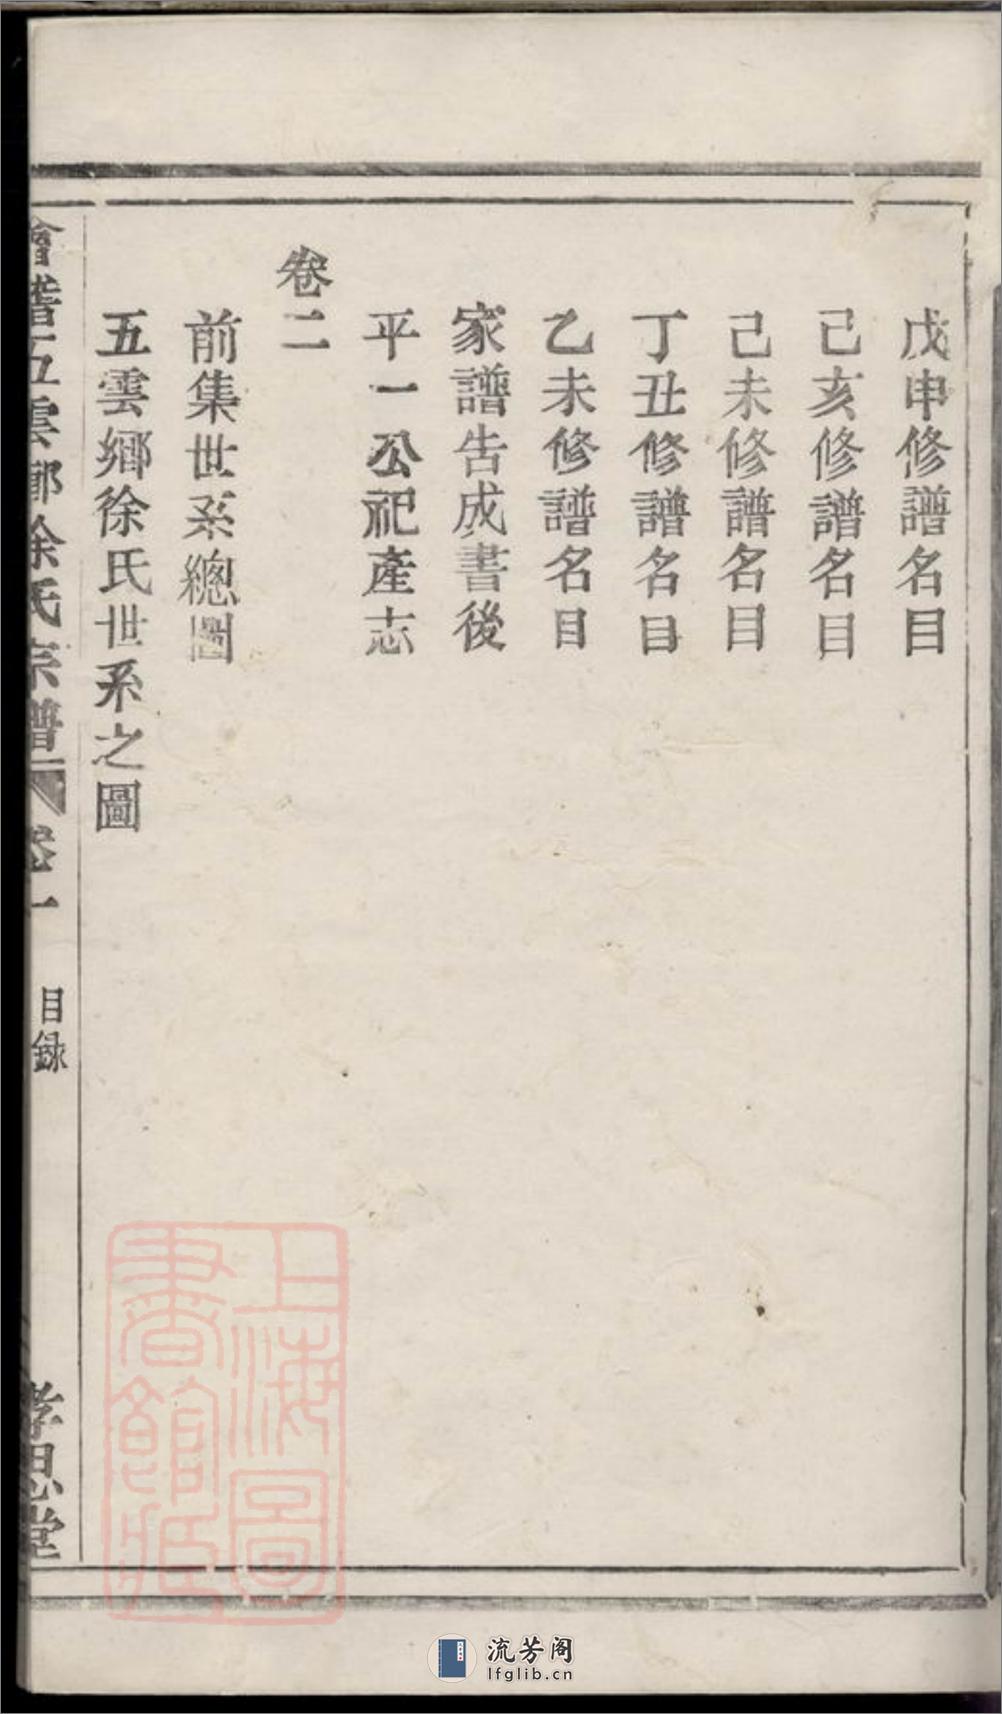 戊申修譜名目
己亥修譜名目
己未修譜名目
丁丑修譜名目
乙未修譜名目
家譜告成書後
平一公祀產志
卷二
前集世系總圖
五雲鄉徐氏世系之圖
會稽五雲鄉徐氏宗譜 卷一 目録 孝思堂
上海圖書館藏
流芳阁
lfglib.cn